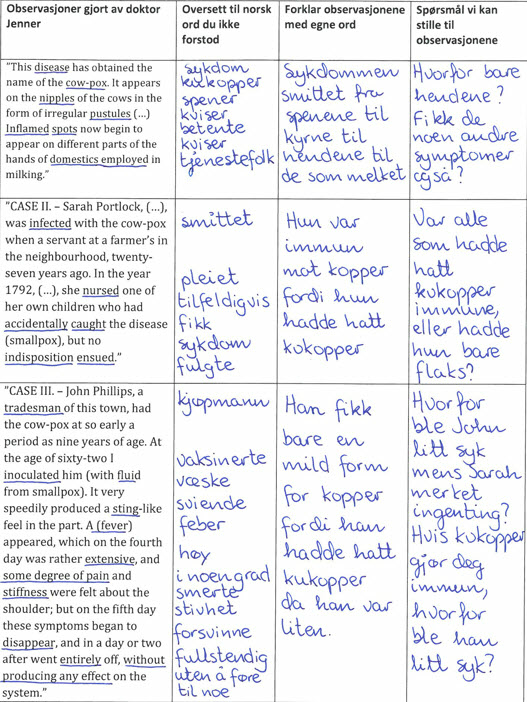 Observasjoner gjort av doktor
Jenner
Oversett til norsk
ord du ikke
forstod
Forklar observasjonene
med egne ord
Spørsmål vi kan
stille til
observasjonene
"This disease has obtained the
name of the cow-pox. It appears
on the nipples of the cows in the
form of irregular pustules (...)
Inflamed spots now begin to
appear on different parts of the
hands of domestics employed in
milking."
sykdom
kukopper
spener
kviser
betente
kviser
tjenestefolk
Sykdommen
smittet fra
spenene til
kyrne til
hendene til
de som melket
Hvorfor bare
hendene?
Fikk de
noen andre
symptomer
også?
"CASE II. – Sarah Portlock, (...),
was infected with the cow-pox
when a servant at a farmer's in
the neighbourhood, twenty-
seven years ago. In the year
1792, (...), she nursed one of
her own children who had
accidentally caught the disease
(smallpox), but no
indisposition ensued."
smittet
pleiet
tilfeldigvis
fikk
sykdom
fulgte
Hun var
immun
mot kopper
fordi hun
hadde hatt
kokopper
Var alle
som hadde
hatt
kukopper
immune,
eller hadde
hun bare
flaks?
"CASE III. – John Phillips, a
tradesman of this town, had
the cow-pox at so early a
period as nine years of age. At
the age of sixty-two I
inoculated him (with fluid
from smallpox). It very
speedily produced a sting-like
feel in the part. A (fever)
appeared, which on the fourth
day was rather extensive, and
some degree of pain and
stiffness were felt about the
shoulder; but on the fifth day
these symptoms began to
disappear, and in a day or two
after went entirely off, without
producing any effect on the
system."
kjøpmann
vaksinerte
væske
sviende
feber
høy
i noen grad
smerte
stivhet
forsvinne
fullstendig
uten å føre
til noe
Han fikk
bare en
mild form
for kopper
fordi han
hadde hatt
kukopper
da han var
liten.
Hvorfor
ble John
litt syk
mens Sarah
merket
ingenting?
Hvis kukopper
gjør deg
immun,
hvorfor
ble han
litt syk?